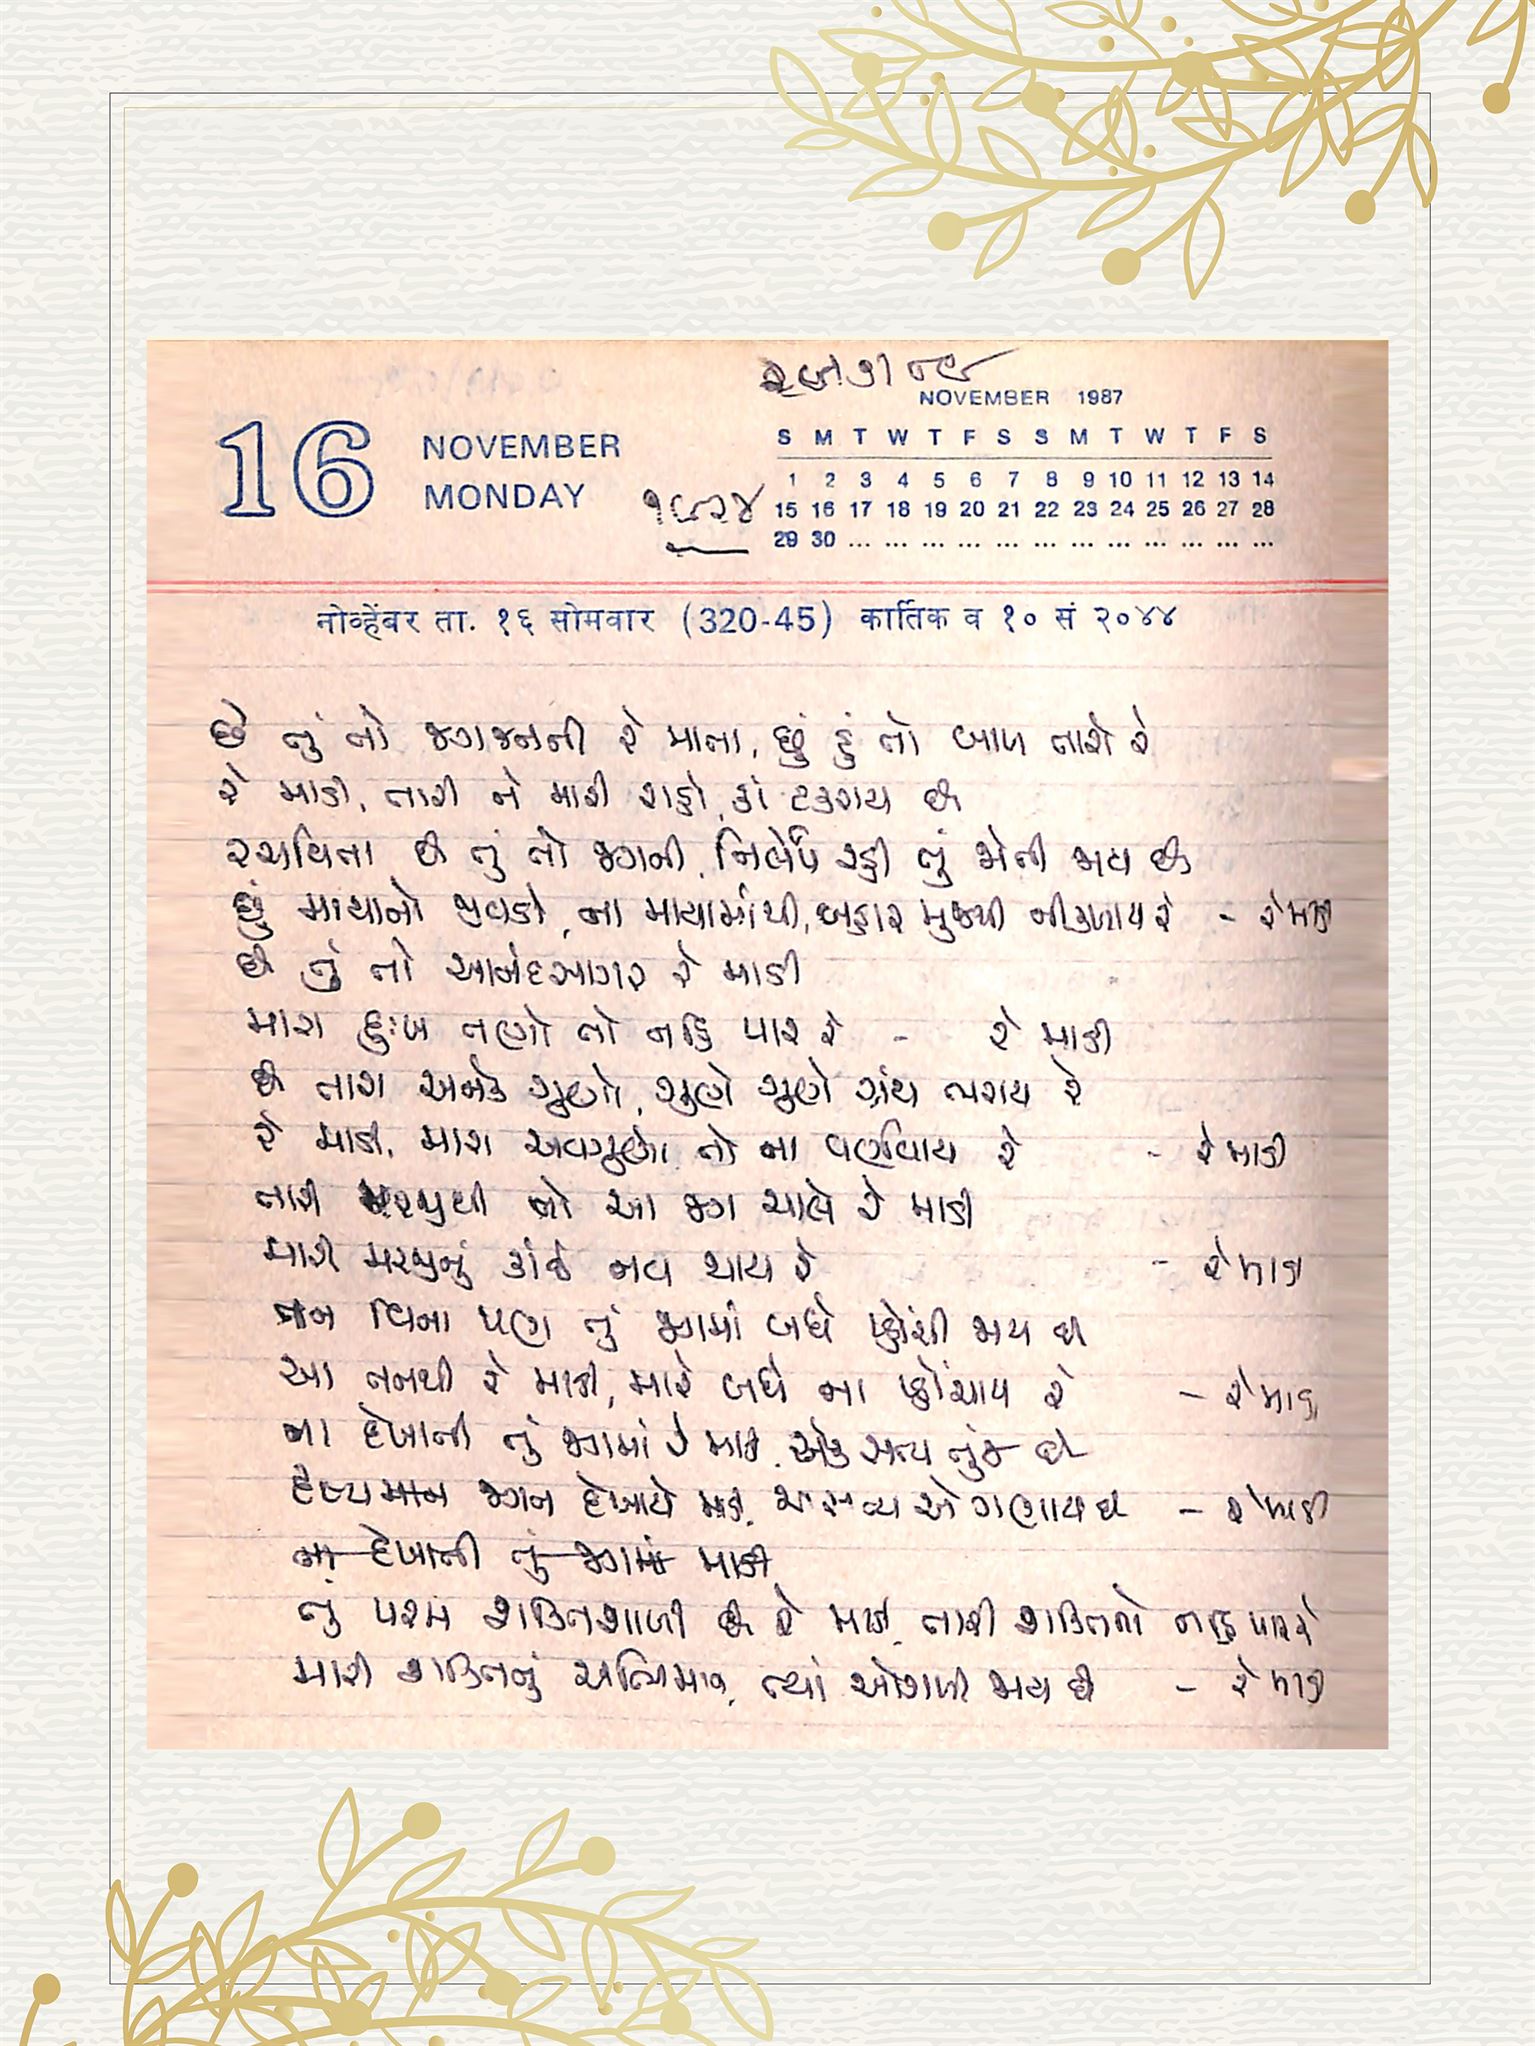 NOVEMBER 1987
16 NOVEMBER
MONDAY
૧૫૨૪
S M T W T F S S M T W T F S
1 2 3 4 5 6 7 8 9 10 11 12 13 14
15 16 17 18 19 20 21 22 23 24 25 26 27 28
29 30 ... ... ... ... ... ... ... ... ... ... ... ...
नोव्हेंबर ता. १६ सोमवार (320-45) कार्तिक व १० सं २०४४
છે તું તો જગજનની રે માતા, છું હું તો બાળ તારો રે
રે માડી, તારી ને મારી રાહો, કાં ટકરાય છે
રચયિતા છે તું તો જગની, નિર્લેપ રહી તું એની જાય છે
છું માયાનો જીવડો, ના માયામાંથી, બહાર મુજથી નીકળાય રે - રે માડી
છે તું તો આનંદસાગર રે માડી
મારા દુઃખ તણો તો નહિ પાર રે - રે માડી
છે તારા અનેક ગુણો, ગુણે ગુણે ગ્રંથ ભરાય રે
રે માડી, મારા અવગુણો તો ના વર્ણવાય રે - રે માડી
તારી મરજીથી તો આ જગ ચાલે રે માડી
મારી મરજીનું કાંઈ નવ થાય રે - રે માડી
તન વિના પણ તું જગમાં બધે પ્હોંચી જાય છે
આ તનથી રે માડી, મારે બધે ના પ્હોંચાય રે - રે માડી
ના દેખાતી તું જગમાં રે માડી, એક સત્ય તુંજ છે
દૃશ્યમાન જગત દેખાયે માડી, અસત્ય એ ગણાય છે - રે માડી
ના દેખાતી તું જગમાં માડી
તું પરમ શક્તિશાળી છે રે માડી, તારી શક્તિનો નહિ પાર રે
મારી શક્તિનું અભિમાન, ત્યાં ઓગળી જાય છે - રે માડી